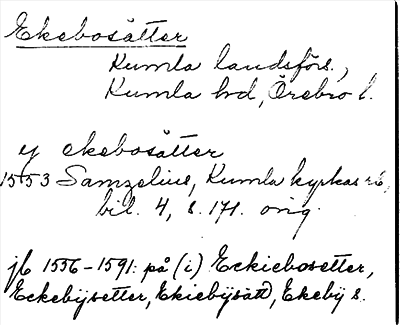 Ekebosätter
Kumla landsförs.,
Kumla hd, Örebro l.
y ekebosätter
1553 Samzelius, Kumla kyrkas rb,
bil. 4, s. 171. orig.
jb 1556-1591: på (i) Eckiebosetter,
Eckebÿsetter, Ekiebÿsätt, Ekebÿ s.